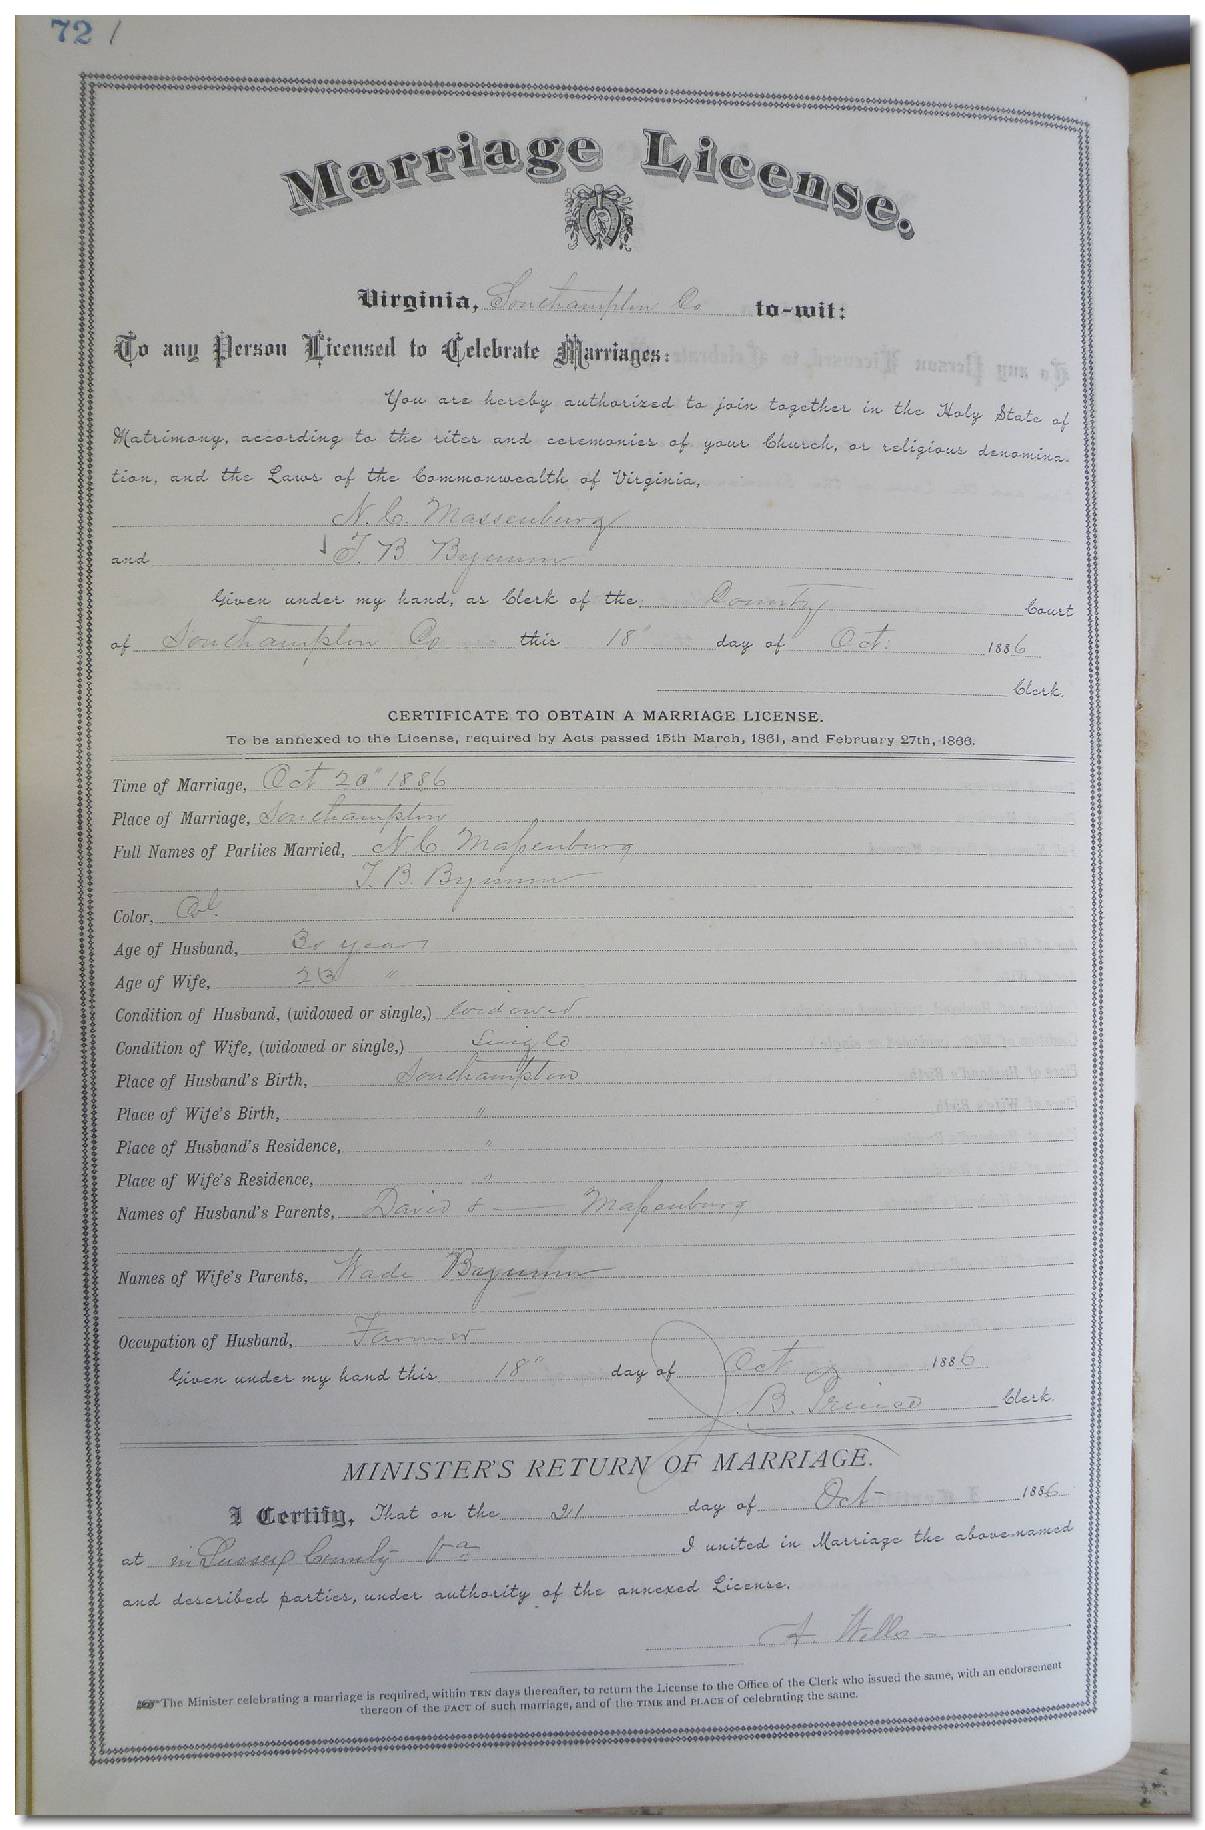 72
Marriage License.
Virginia, Southampton Co to-wit:
To any Person Licensed to Celebrate Marriages:
You are hereby authorized to join together in the Holy State of
Matrimony, according to the rites and ceremonies of your Church, or religious denomina-
tion, and the Laws of the Commonwealth of Virginia,
N. C. Massenburg
and T. B. Bynum
Given under my hand, as Clerk of the County Court
of Southampton Co this 18" day of Oct. 1886
Clerk.
CERTIFICATE TO OBTAIN A MARRIAGE LICENSE.
To be annexed to the License, required by Acts passed 15th March, 1861, and February 27th, 1866.
Time of Marriage, Oct 20" 1886
Place of Marriage, Southampton
Full Names of Parties Married, N C Maſsenburg
T. B. Bynum
Color, Col.
Age of Husband, 30 years
Age of Wife, 23 "
Condition of Husband, (widowed or single,) widowed
Condition of Wife, (widowed or single,) Single
Place of Husband's Birth, Southampton
Place of Wife's Birth, "
Place of Husband's Residence, "
Place of Wife's Residence, "
Names of Husband's Parents, David & — Maſsenburg
Names of Wife's Parents, Wade Bynum
Occupation of Husband, Farmer
Given under my hand this 18" day of Oct 1886
B. Prince Clerk.
MINISTER'S RETURN OF MARRIAGE.
I Certify, That on the 21 day of Oct 1886
at in Sussex County Va I united in Marriage the above-named
and described parties, under authority of the annexed License.
A. Wells
The Minister celebrating a marriage is required, within TEN days thereafter, to return the License to the Office of the Clerk who issued the same, with an endorsement
thereon of the FACT of such marriage, and of the TIME and PLACE of celebrating the same.